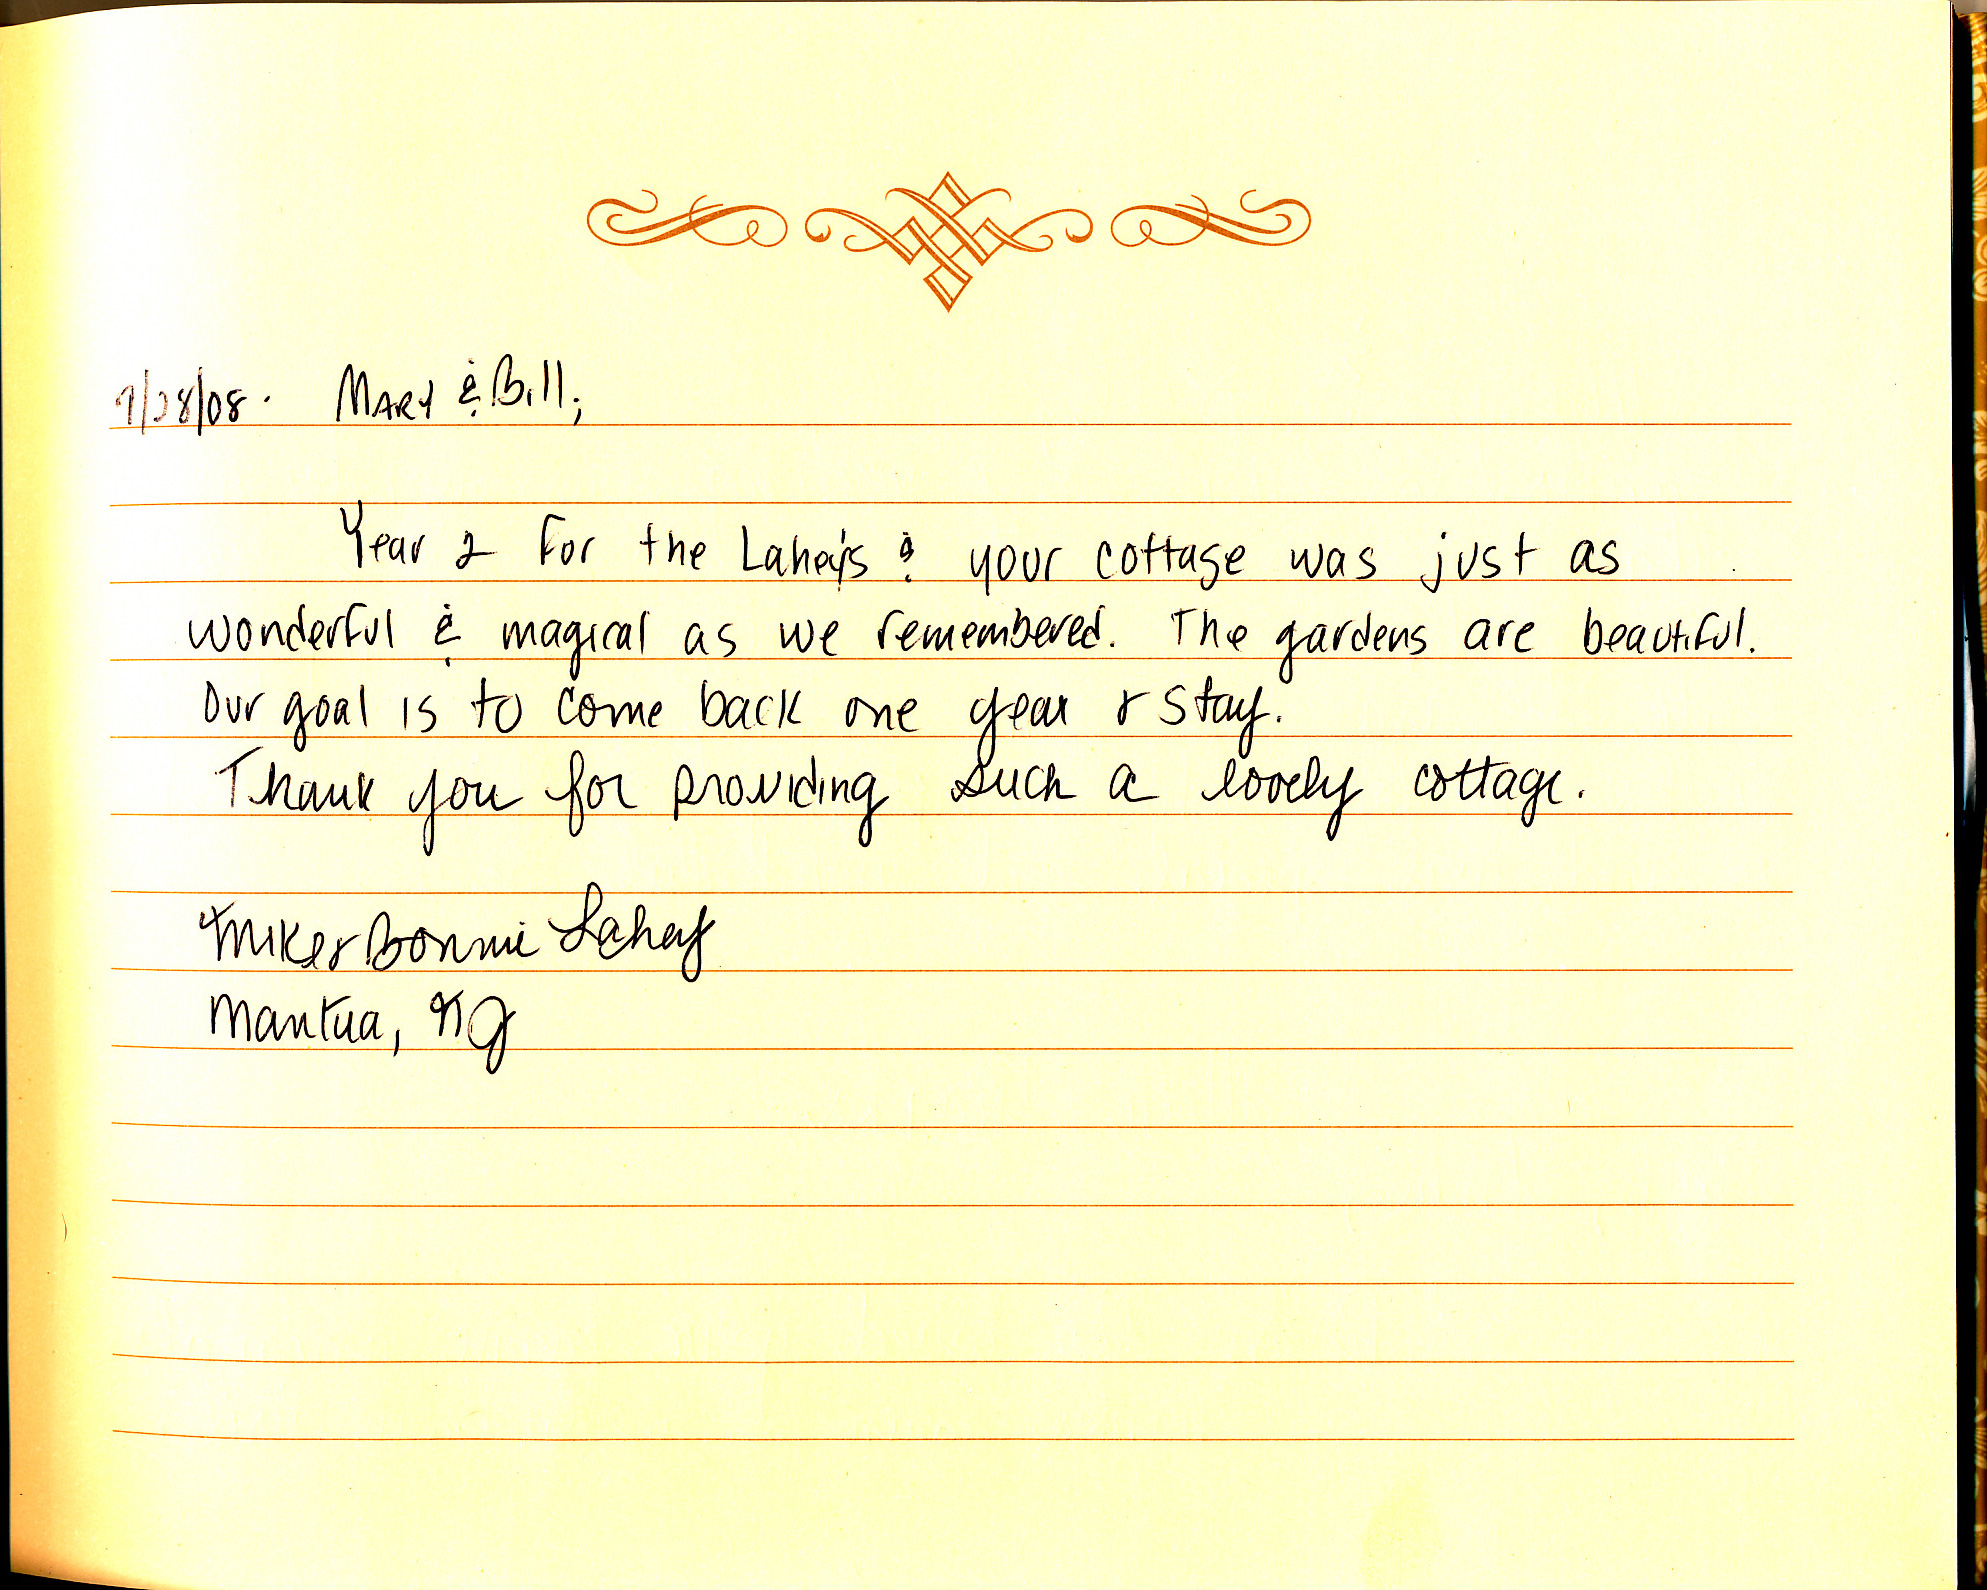 9/28/08. Mary & Bill,
Year 2 for the Lahey's & your cottage was just as
wonderful & magical as we remembered. The gardens are beautiful.
Our goal is to come back one year & stay.
Thank you for providing such a lovely cottage.
Mike & Bonnie Lahey
Mantua, NJ